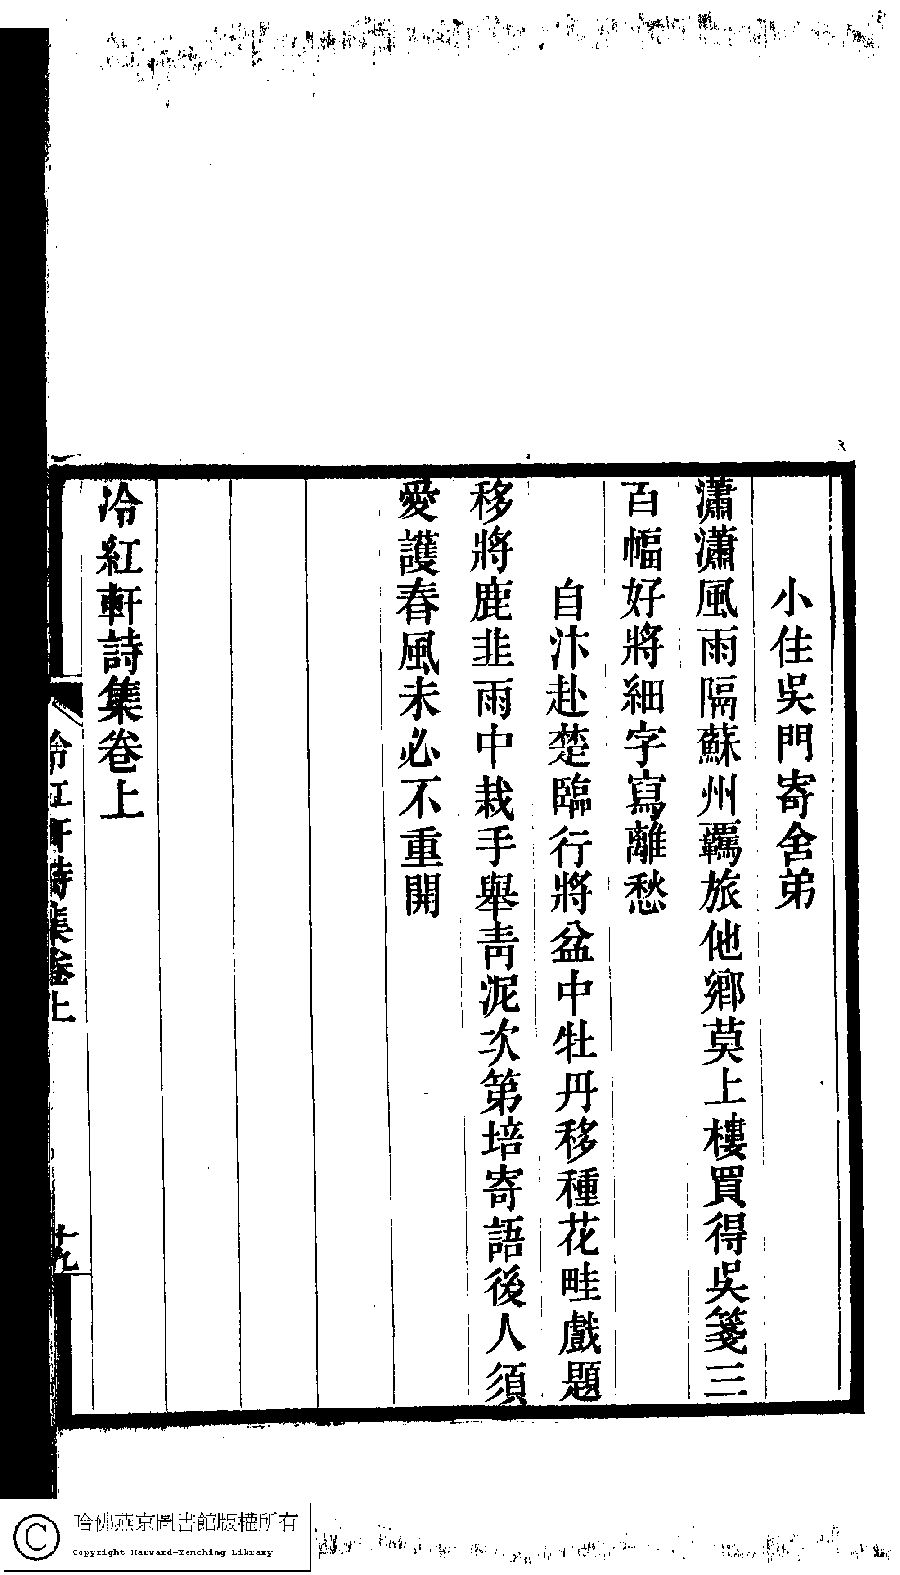 小住吳門寄舍弟
瀟瀟風雨隔蘇州羈旅他鄉莫上樓買得吳箋三
百幅好將細字寫離愁
自汴赴楚臨行將盆中牡丹移種花畦戲題
移將鹿韭雨中栽手舉靑泥次第培寄語後人須
愛護春風未必不重開
冷紅軒詩集卷上
冷紅軒詩集卷上
十九
哈佛燕京圖書館版權所有
Copyright Harvard-Yenching Library